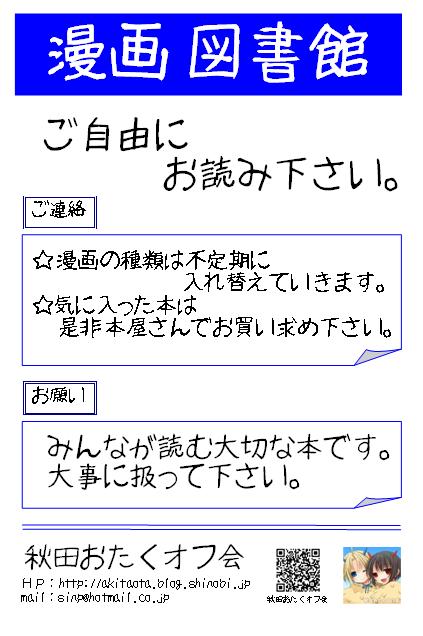 漫画 図書館
ご自由に
お読み下さい。
ご連絡
☆漫画の種類は不定期に
入れ替えていきます。
☆気に入った本は
是非本屋さんでお買い求め下さい。
お願い
みんなが読む大切な本です。
大事に扱って下さい。
秋田おたくオフ会
HP：http://akitaota.blog.shinobi.jp
mail：sinp@hotmail.co.jp
秋田おたくオフ会